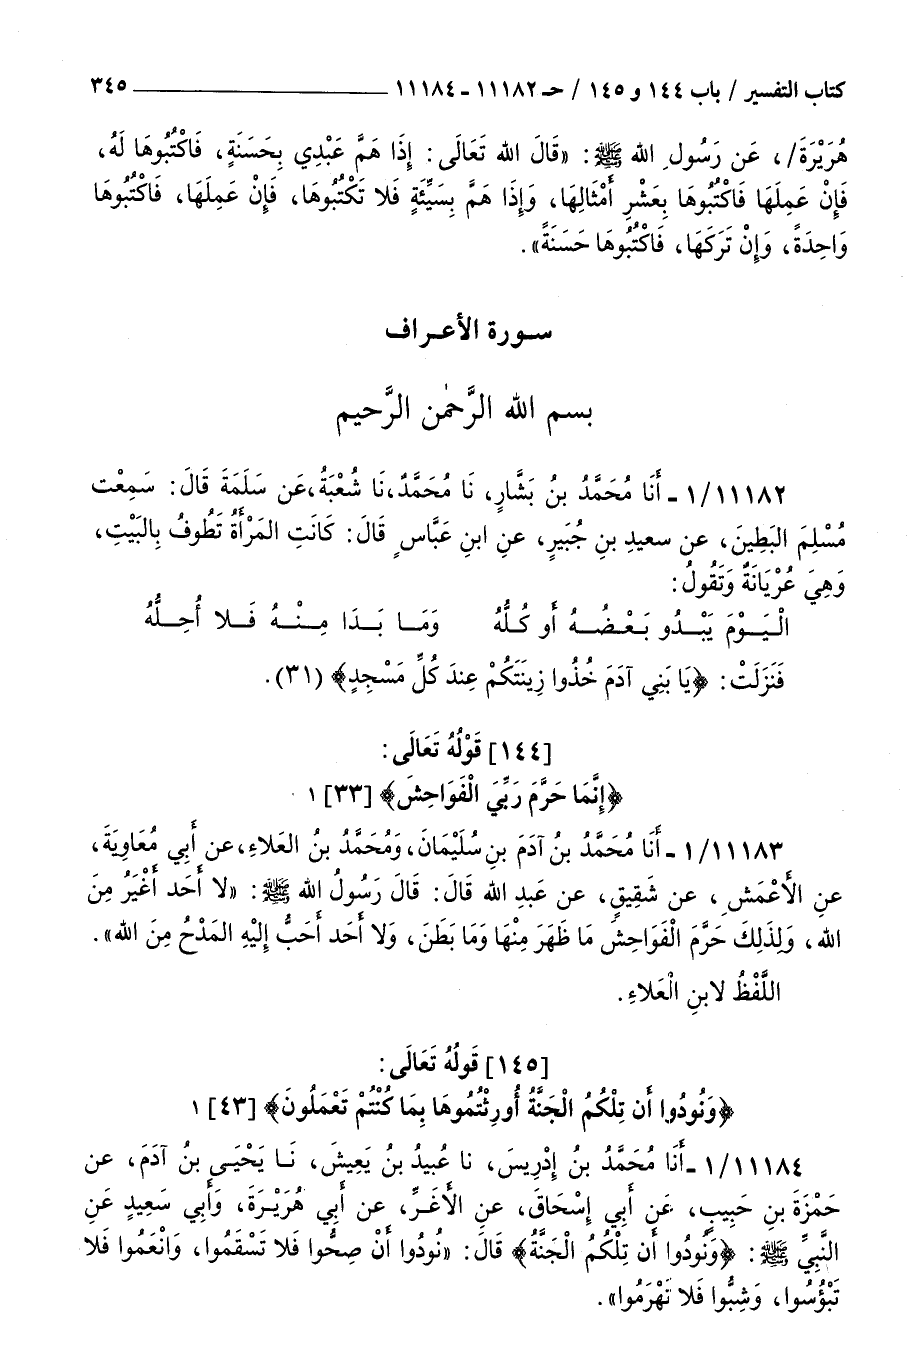 كتاب التفسير / باب ١٤٤ و ١٤٥ / حـ ١١١٨٢ - ١١١٨٤ ٣٤٥
هُرَيْرَةَ/، عَن رَسُولِ الله ﷺ: «قَالَ الله تَعَالَى: إِذَا هَمَّ عَبْدِي بِحَسَنَةٍ، فَاكْتُبُوهَا لَهُ،
فَإِنْ عَمِلَهَا فَاكْتُبُوهَا بِعَشْرِ أَمْثَالِهَا، وَإِذَا هَمَّ بِسَيِّئَةٍ فَلا تَكْتُبُوهَا، فَإِنْ عَمِلَهَا، فَاكْتُبُوهَا
وَاحِدَةً، وَإِنْ تَرَكَهَا، فَاكْتُبُوهَا حَسَنَةً».
سورة الأعراف
بسم الله الرَّحمٰن الرَّحيم
١/١١١٨٢ - أَنَا مُحَمَّدُ بنُ بَشَّارٍ، نَا مُحَمَّدٌ، نَا شُعْبَةُ، عَن سَلَمَةَ قَالَ: سَمِعْت
مُسْلِمَ البَطِينَ، عن سعيدِ بنِ جُبَيرٍ، عنِ ابنِ عَبَّاسٍ قَالَ: كَانَتِ المَرْأَةُ تَطُوفُ بِالبَيْتِ،
وَهِيَ عُرْيَانَةٌ وَتَقُولُ:
الْيَوْمَ يَبْدُو بَعْضُهُ أَو كُلُّهُ وَمَا بَدَا مِنْهُ فَلا أُحِلُّهُ
فَنَزَلَتْ: ﴿يَا بَنِي آدَمَ خُذُوا زِينَتَكُمْ عِندَ كُلِّ مَسْجِدٍ﴾ (٣١).
[١٤٤] قَوْلُهُ تَعَالَى:
﴿إِنَّمَا حَرَّمَ رَبِّيَ الْفَوَاحِشَ﴾ [٣٣] ١
١/١١١٨٣ - أَنَا مُحَمَّدُ بنُ آدَمَ بنِ سُلَيْمَانَ، وَمُحَمَّدُ بنُ العَلاءِ، عن أَبِي مُعَاوِيَةَ،
عنِ الأَعْمَشِ، عن شَقِيقٍ، عن عَبدِ الله قَالَ: قَالَ رَسُولُ الله ﷺ: «لا أَحَد أَغْيَرُ مِنَ
الله، وَلِذَلِكَ حَرَّمَ الْفَوَاحِشَ مَا ظَهَرَ مِنْهَا وَمَا بَطَنَ، وَلا أَحَد أَحَبُّ إِلَيْهِ المَدْحُ مِنَ الله».
اللَّفْظُ لابنِ الْعَلاءِ.
[١٤٥] قَولُهُ تَعَالَى:
﴿وَنُودُوا أَن تِلْكُمُ الْجَنَّةُ أُورِثْتُمُوهَا بِمَا كُنْتُمْ تَعْمَلُونَ﴾ [٤٣] ١
١/١١١٨٤ - أَنَا مُحَمَّدُ بنُ إِدْرِيسَ، نا عُبيدُ بنُ يَعِيشَ، نَا يَحْيَى بنُ آدَمَ، عن
حَمْزَةَ بنِ حَبِيبٍ، عَن أَبِي إِسْحَاقَ، عنِ الأَغَرِّ، عن أَبِي هُرَيْرَةَ، وَأَبِي سَعِيدٍ عَنِ
النَّبِيِّ ﷺ: ﴿وَنُودُوا أَن تِلْكُمُ الْجَنَّةُ﴾ قَالَ: «نُودُوا أَنْ صِحُّوا فَلا تَسْقَمُوا، وَانْعَمُوا فَلا
تَبْؤُسُوا، وَشِبُّوا فَلا تَهْرَمُوا».